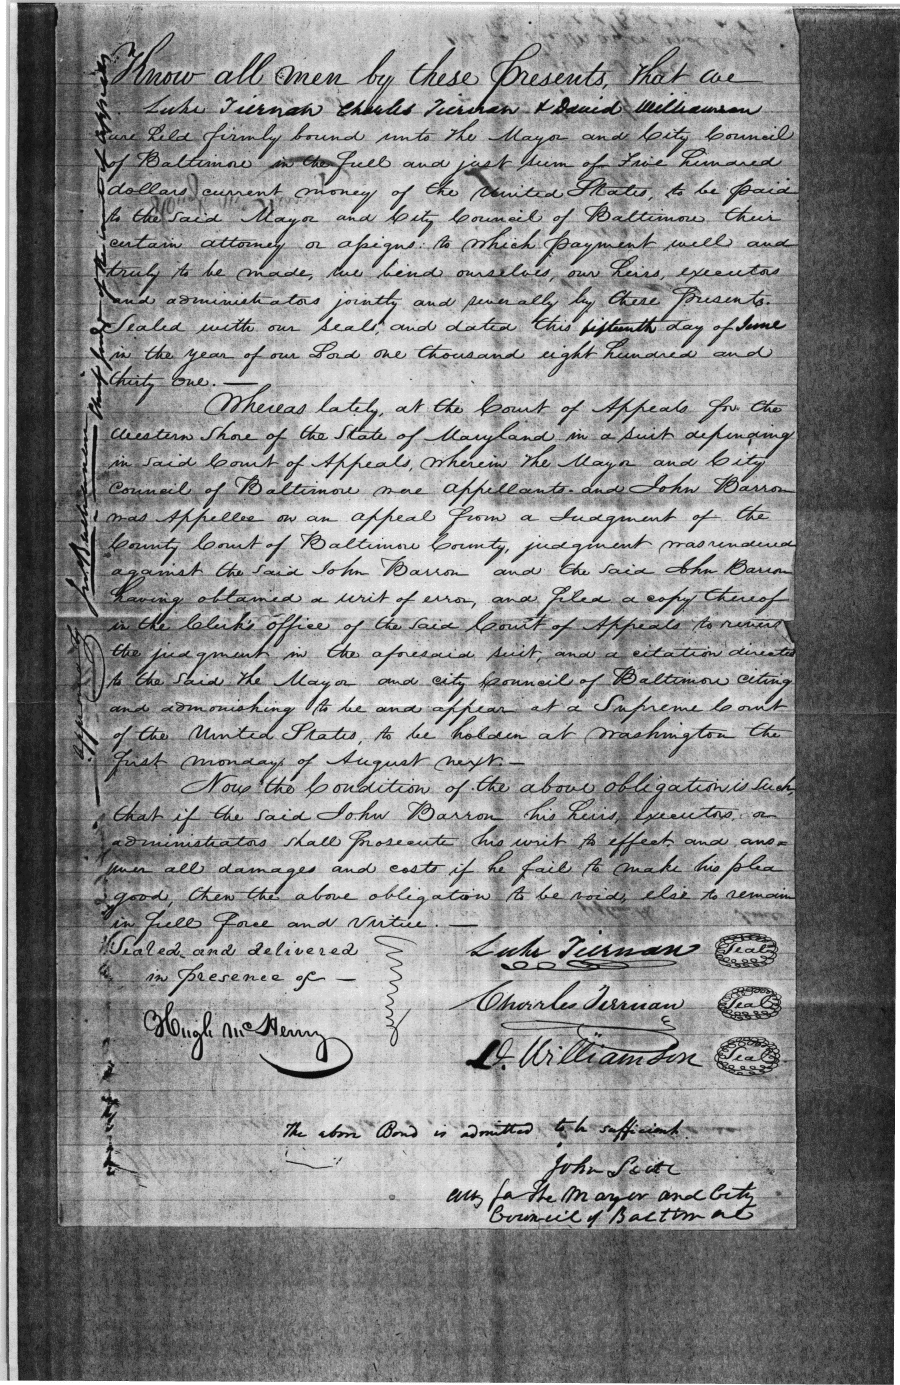 Know all men by these Presents, that we
Luke Tiernan Charles Tiernan & David Williamson
are held firmly bound unto the Mayor and City Council
of Baltimore in the full and just sum of Five hundred
dollars current money of the United States, to be paid
to the said Mayor and City Council of Baltimore their
certain attorney or assigns: to which payment well and
truly to be made, we bind ourselves, our heirs, executors
and administrators jointly and severally by these Presents.
Sealed with our seals, and dated this fifteenth day of June
in the year of our Lord one thousand eight hundred and
thirty one. —
Whereas lately, at the Court of Appeals for the
Western Shore of the State of Maryland in a suit depending
in said Court of Appeals, wherein The Mayor and City
Council of Baltimore were appellants and John Barron
was Appellee on an appeal from a Judgment of the
County Court of Baltimore County, judgment was rendered
against the said John Barron and the said John Barron
having obtained a writ of error, and filed a copy thereof
in the Clerk's office of the said Court of Appeals to revers
the judgment in the aforesaid suit, and a citation directed
to the said The Mayor and City Council of Baltimore citing
and admonishing to be and appear at a Supreme Court
of the United States, to be holden at Washington the
first monday of August next. —
Now the Condition of the above obligation is such,
that if the said John Barron his heirs, executors, or
administrators shall prosecute his writ to effect and ans=
wer all damages and costs if he fail to make his plea
good, then the above obligation to be void, else to remain
in full force and virtue. —
Sealed and delivered
in presence of —
Hugh McHenry
Luke Tiernan Seal
Charles Tiernan Seal
D. Williamson Seal
The above Bond is admitted to be sufficient.
John Scott
atty for The Mayor and City
Council of Baltimore
approved by
Chief Judge of the